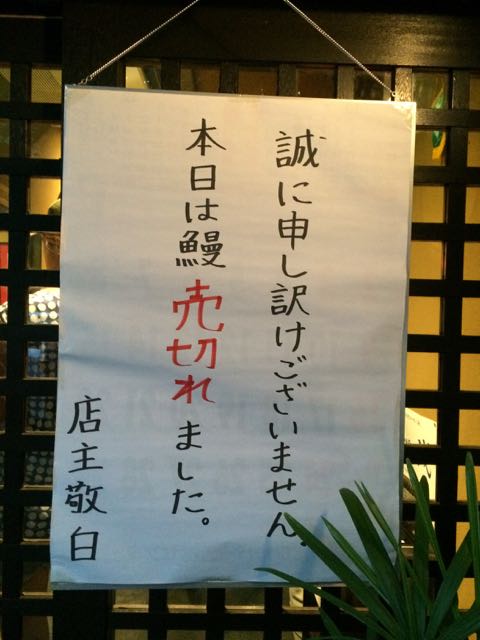 誠に申し訳けございません。
本日は鰻売切れました。
店主敬白